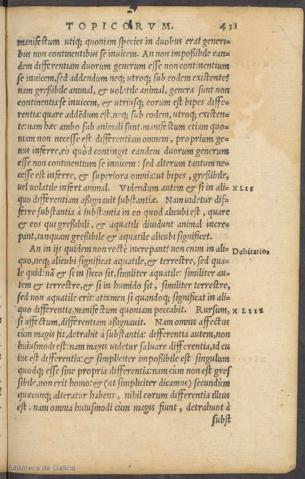 TOPICORVM. 431
manifestum utiq; quoniam species in duobus erat generi-
bus non continentibus se inuicem. An non impoßibile ean-
dem differentiam duorum generum esse non continentium
se inuicem, sed addendum neq; utroq; sub eodem existente:
nam greßibile animal, & uolatile animal, genera sunt non
continentia se inuicem, & utriusq; eorum est bipes diffe-
rentia: quare addẽdum est, neq; sub eodem, utroq; existen-
te: nam hæc ambo sub animali sunt. manifestum etiam quo-
niam non necesse est differentiam omnem, proprium ge-
nus inferre, eo quòd contingit eandem duorum generum
esse non continentium se inuicem: sed alterum tantum ne-
cesse est inferre, & superiora omnia: ut bipes, greßibile,
uel uolatile infert animal. Videndum autem & si in ali- XLII
quo differentiam aßignauit substantiæ. Nam uidetur dif-
ferre substantia à substantia in eo quod alicubi est, quare
& eos qui greßibili, & aquatili diuidunt animal incre-
pant, tanquam greßibile & aquatile alicubi significet.
An in ijs quidem non rectè increpant? non enim in ali- Dubitatio.
quo, neq; alicubi significat aquatile, & terrestre, sed qua-
le quid: nã & si in sicco sit, similiter aquatile: similiter au-
tem & terrestre, & si in humido sit, similiter terrestre,
sed non aquatile erit: attamen si quandoq; significat in ali-
quo differentia, manifestum quoniam peccabit. Rursum, XLIII
si affectum, differentiam aßignauit. Nam omnis affectus
cum magis fit, detrahit à substantia: differentia autem, non
huiusmodi est: nam magis uidetur saluare differentia, id cu
ius est differentia: & simpliciter impoßibile est singulum
quodq; esse sine propria differentia: nam cùm non est gres
sibile, non erit homo: & (ut simpliciter dicamus) secundùm
quæcunq; alteratur habens, nihil eorum differentia illius
est. nam omnia huiusmodi cùm magis fiunt, detrahunt à
subst
Biblioteca de Galicia